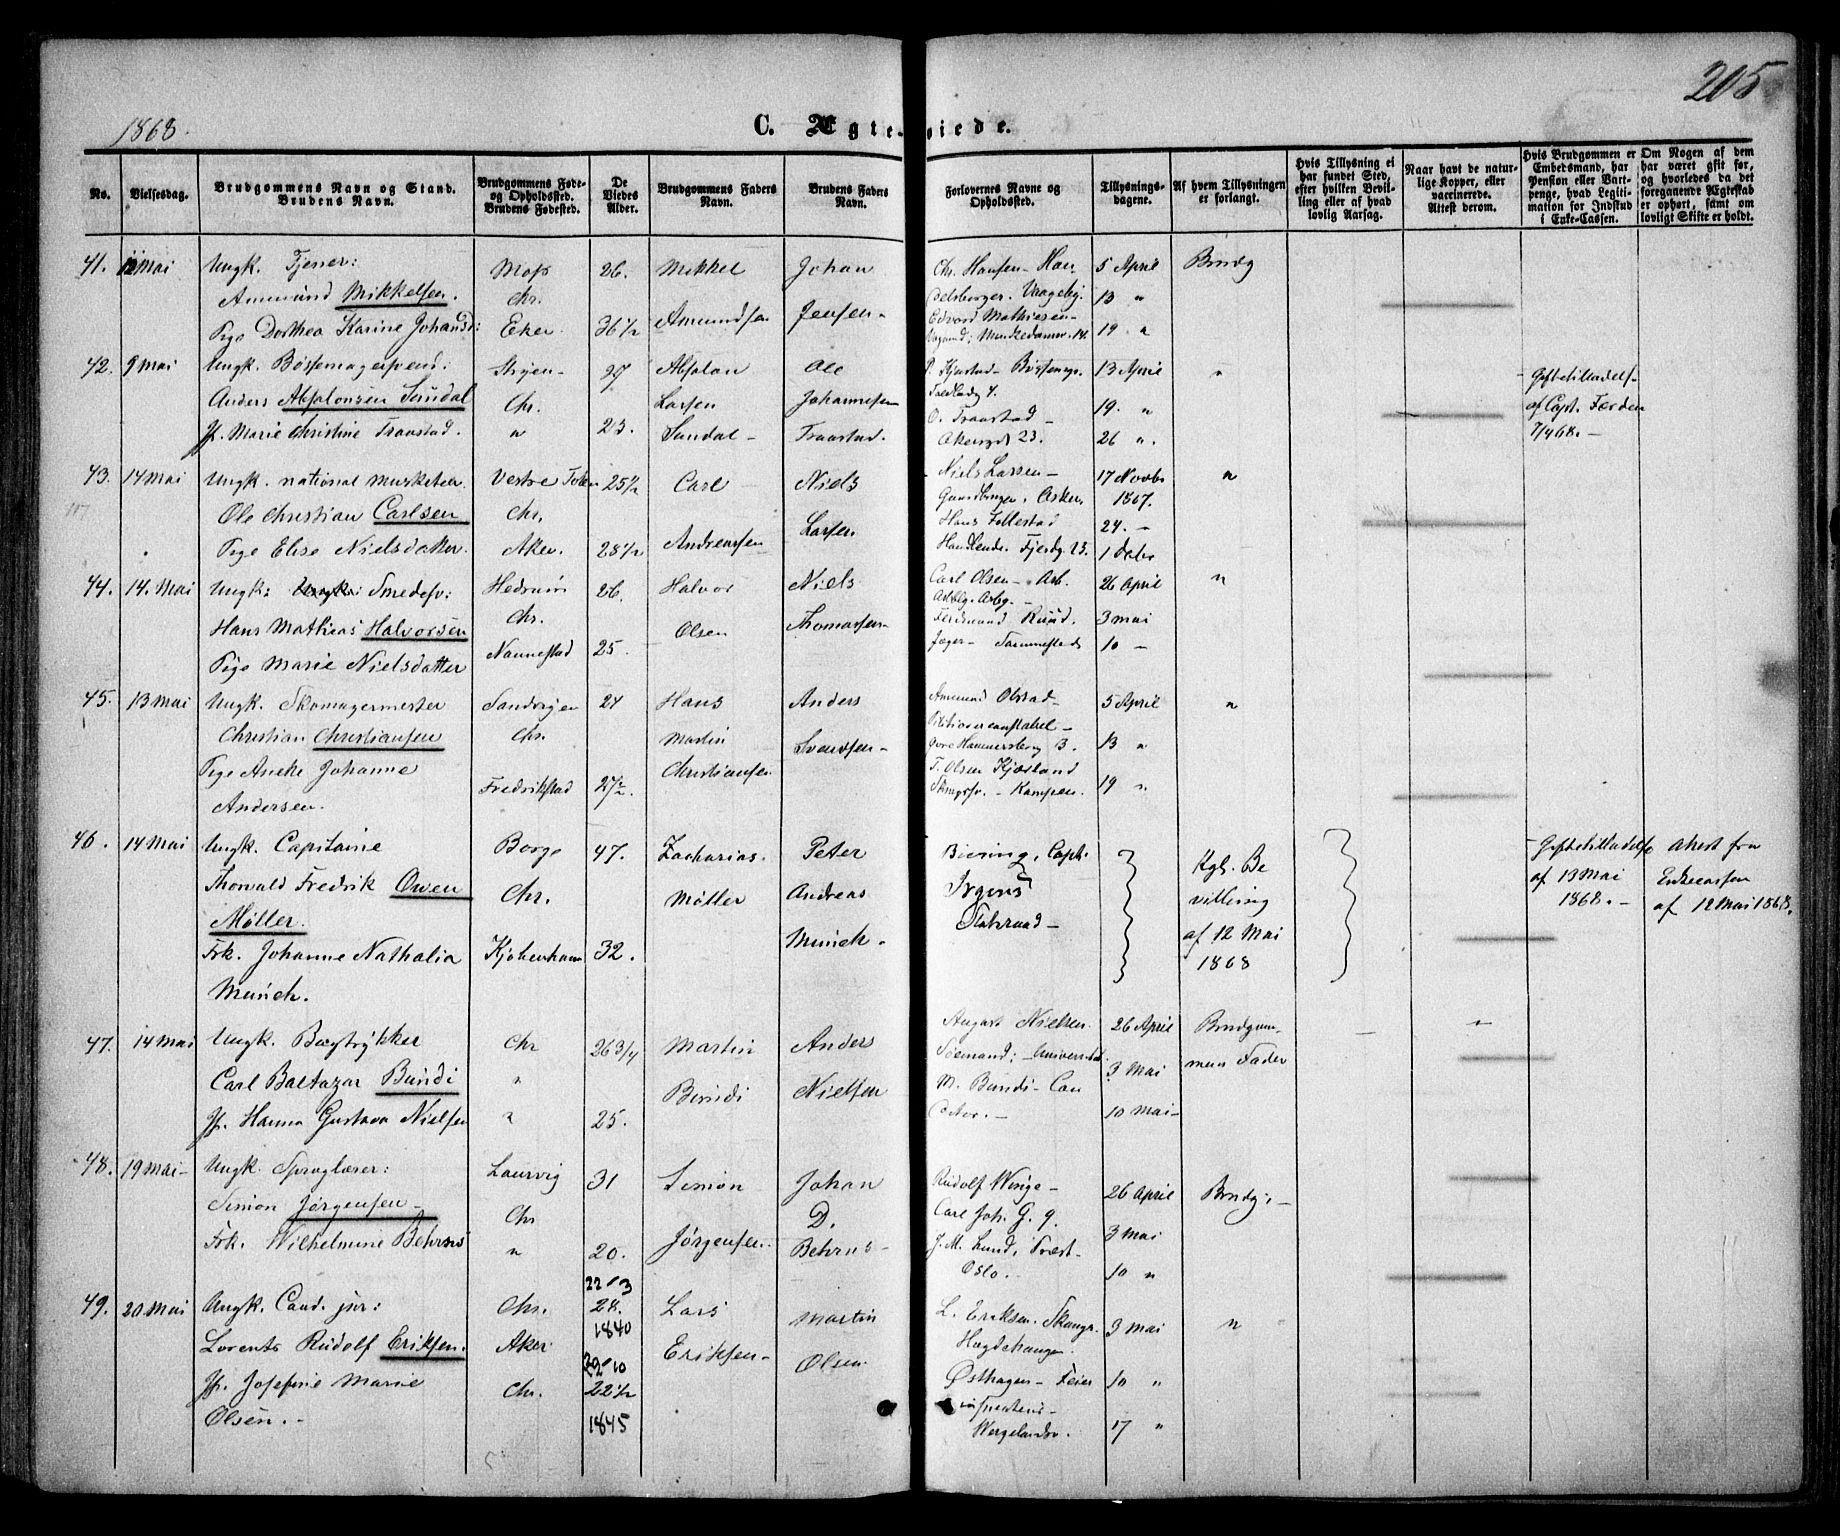 205
1868.
C. Ægte-viede.
No.
Vielsesdag.
Brudgommens Navn og Stand.
Brudens Navn.
Brudgommens Føde-
og Opholdssted.
Brudens Fødested.
De
Viedes
Alder.
Brudgommens Faders
Navn.
Brudens Faders
Navn.
Forlovernes Navne og
Opholdssted.
Tillysnings-
dagene.
Af hvem Tillysningen
er forlangt.
Hvis Tillysning ei
har fundet Sted,
efter hvilken Bevil-
ling eller af hvad
lovlig Aarsag.
Naar havt de natur-
lige Kopper, eller
vaccinerede.
Attest derom.
Hvis Brudgommen er
Embedsmand, har
Pension eller Vart-
penge, hvad Legiti-
mation for Indskud
i Enke-Cassen.
Om Nogen af dem
har været gift før,
og hvorledes da det
foregaaende Ægteskab
er ophørt, samt om
lovligt Skifte er holdt.
41. 12 Mai Ungk. Tjener: Moss 26. Mikkel Johan Chr. Hansen 5 April Brudg
Ammund Mikkelsen. Chr. 13 "
Pige Dorthea Karine Johansd: Eker 36 1/2 Amundsen Jensen Edvard Mathiesen 19. "
42. 9 Mai Ungk. Bøssemagersvend: 27 Absolon Ole 13 April "
Anders Absolonsen Sundal Chr. Larsen Johannesen 19. "
Jf. Marie Christine Traastad. " 23. Sundal Traastad. O. Traastad Akersgd 23. 26 "
Giftetilladelse
af Capt. Færden
7/4 68.
43. 14 Mai Ungk. national musketeer Vestre Toten 25 1/2 Carl Niels Niels Larsen 17 Novbr "
Ole Christian Carlsen Chr. Asker. 1867.
Pige Elise Nielsdatter Aker. 28 1/2 Andreassen Larsen Hans 24.
Fjerdg. 23. 1 Debr
44. 14. Mai Ungk: Smedesv: Hedrum 26. Halvor Niels Carl Olsen Arb. 26 April "
Hans Mathias Halvorsen Chr. Olsen Thomassen Ferdinand Ruud. 3 Mai
Pige Marie Nielsdatter Nannestad 25. 10
45. 13 Mai Ungk. Skomagermester 24 Hans Anders Ammund Olstad 5 April "
Christian Christiansen Chr. Martin Svendsen Hammersborg 13. 13 "
Pige Aneke Johanne Fredrikstad 27 1/2. Christiansen T. Olsen Kjæstand 19 "
Andersen. Kampen.
46. 14 Mai Ungk. Capitaine Borge 47. Zacharias Peter Biering, Capt. Kgl. Be
Thorvald Fredrik Owen Chr. Møller Andreas Irgens villing
Møller. Munch af 12 Mai
Frk. Johanne Nathalia Kjøbenhavn 32. 1868
Munch.
Giftetilladelse
af 13 Mai
1868.
Attest fra
Enkecassen
af 12 Mai 1868.
47. 14 Mai Ungk. Bogtrykker Chr 26 3/4 Martin Anders August Nielsen 26 April Brudgom-
Carl Baltazar Bundi " Bundi Nielsen Sømand; 3 Mai mens Fader
Jf. Hanna Gustava Nielsen " 25. M. Bundi 10 Mai
48. 19 Mai Ungk. Sproglærer: Laurvig 31 Simon Johan Rudolf Winge 26 April Brudg:
Simon Jørgensen Chr D. Carl Joh. G. 9. 3 Mai
Frk. Wilhelmine Behrns " 20. Jørgensen Behrns J. M. Lund, Oslo. 10 "
49. 20 Mai Ungk. Cand. jur: Chr. 22/3 28. 1840 Lars Martin L. Eriksen. 3 Mai "
Lorents Rudolf Eriksen. Aker Eriksen Olsen Hægdehaugen.
Jf. Josefine Marie Chr. 29/10 22 1/2 1845 Østhagen Feier 10 "
Olsen. Wergelandsv. 17 "